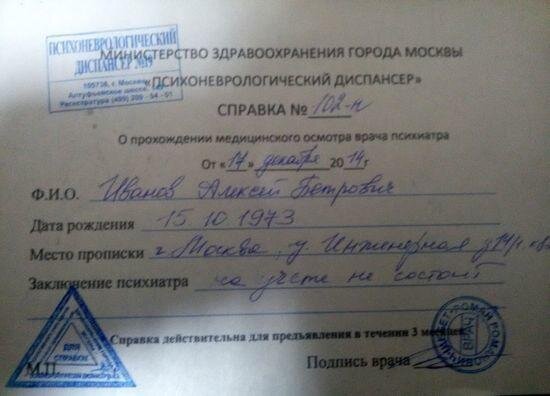 ПСИХОНЕВРОЛОГИЧЕСКИЙ
ДИСПАНСЕР №19
г. Москва
Алтуфьевское шоссе,
Регистратура (495)
МИНИСТЕРСТВО ЗДРАВООХРАНЕНИЯ ГОРОДА МОСКВЫ
«ПСИХОНЕВРОЛОГИЧЕСКИЙ ДИСПАНСЕР»
СПРАВКА № 102-н
О прохождении медицинского осмотра врача психиатра
От «17» декабря 2014г
Ф.И.О. Иванов Алексей Петрович
Дата рождения 15.10.1973
Место прописки г. Москва, у Инженерная
Заключение психиатра на учёте не состоит
Справка действительна для предъявления в течении 3 месяцев
ДЛЯ
СПРАВОК
ВРАЧ
РОМАН
М.П. Подпись врача